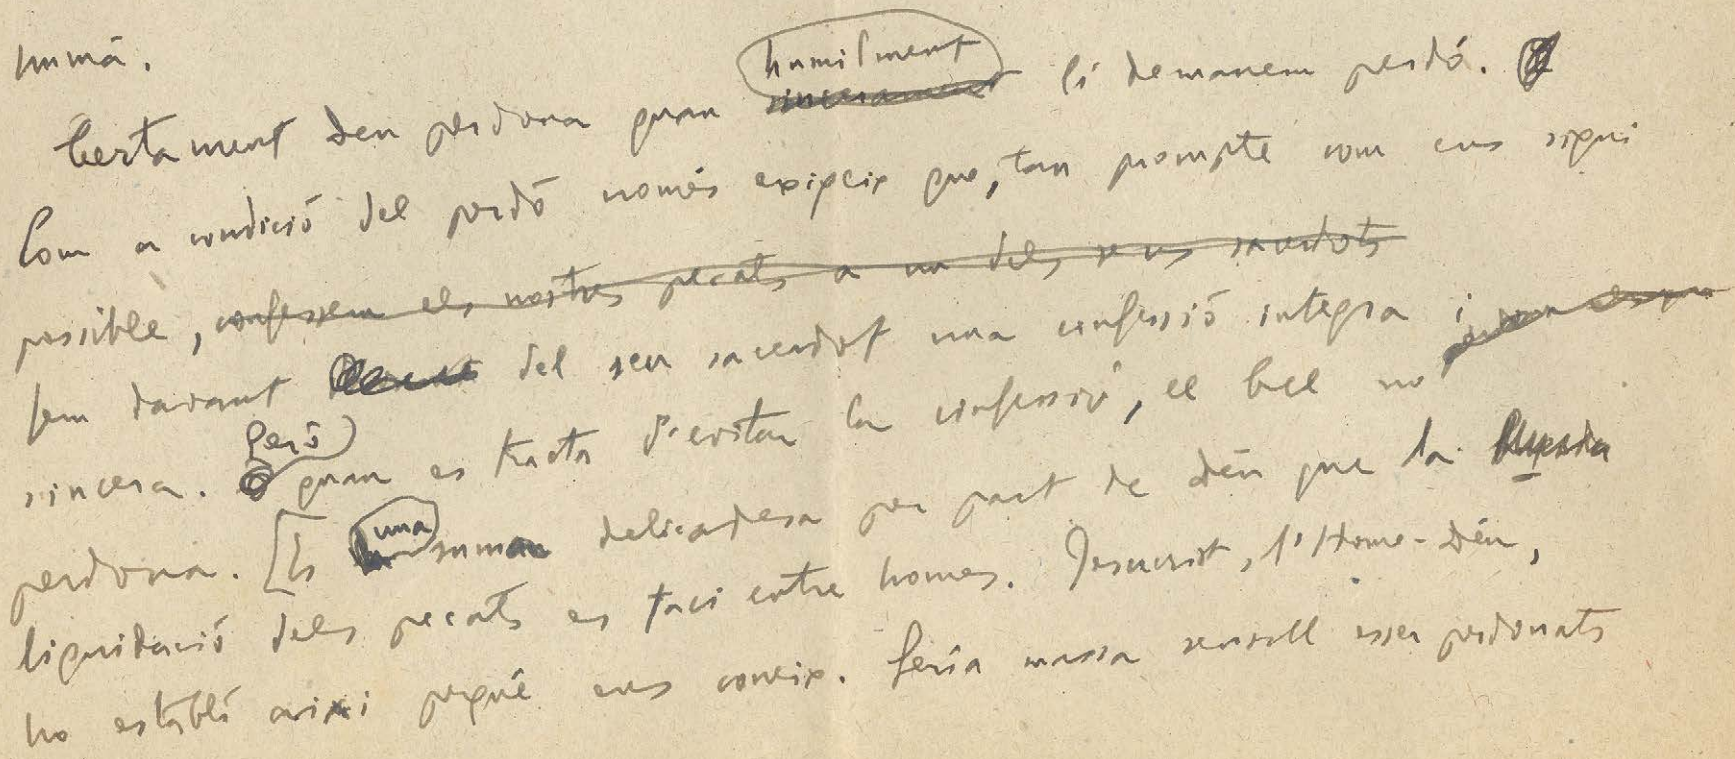 humà.
Certament Deu perdona quan humilment sincerament li demanem perdó.
Com a condició del perdó només exigeix que, tan prompte com ens sigui
possible, confessem els nostres pecats a un dels seus sacerdots
fem davant del seu sacerdot una confessió integra i
sincera. Però quan es tracta d'evitar la confessió, ell no
perdona. [Es una suma delicadesa per part de Déu que la
liquidació dels pecats es faci entre homes. Jesucrist, l'Home-Déu,
ho establí aixi perquè ens coneix. Seria massa senzill esser perdonats